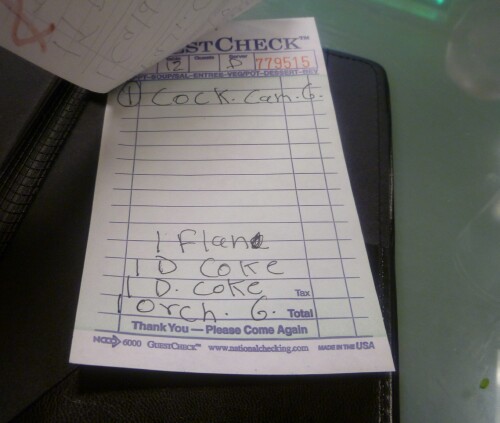 GUESTCHECK™
12 Guests 5 Server 779515
APPT-SOUP/SAL-ENTREE-VEG/POT-DESSERT-BEV
① Cock. Cam. G.
1 Flan
1 D Coke
1 D. Coke Tax
1 orch. G. Total
Thank You — Please Come Again
6000 GUESTCHECK™ www.nationalchecking.com MADE IN THE USA